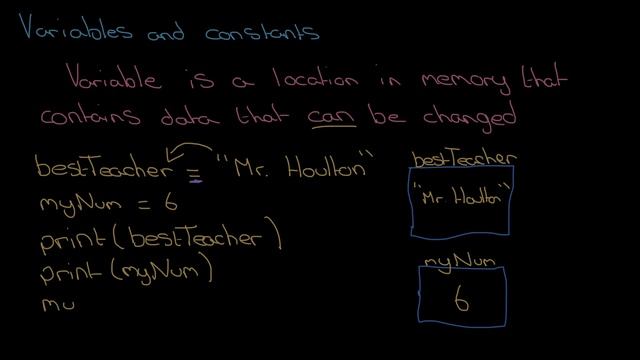 Variables and constants
Variable is a location in memory that
contains data that can be changed
bestTeacher = "Mr. Houlton"
myNum = 6
print(bestTeacher)
print(myNum)
mu
bestTeacher
"Mr. Houlton"
myNum
6